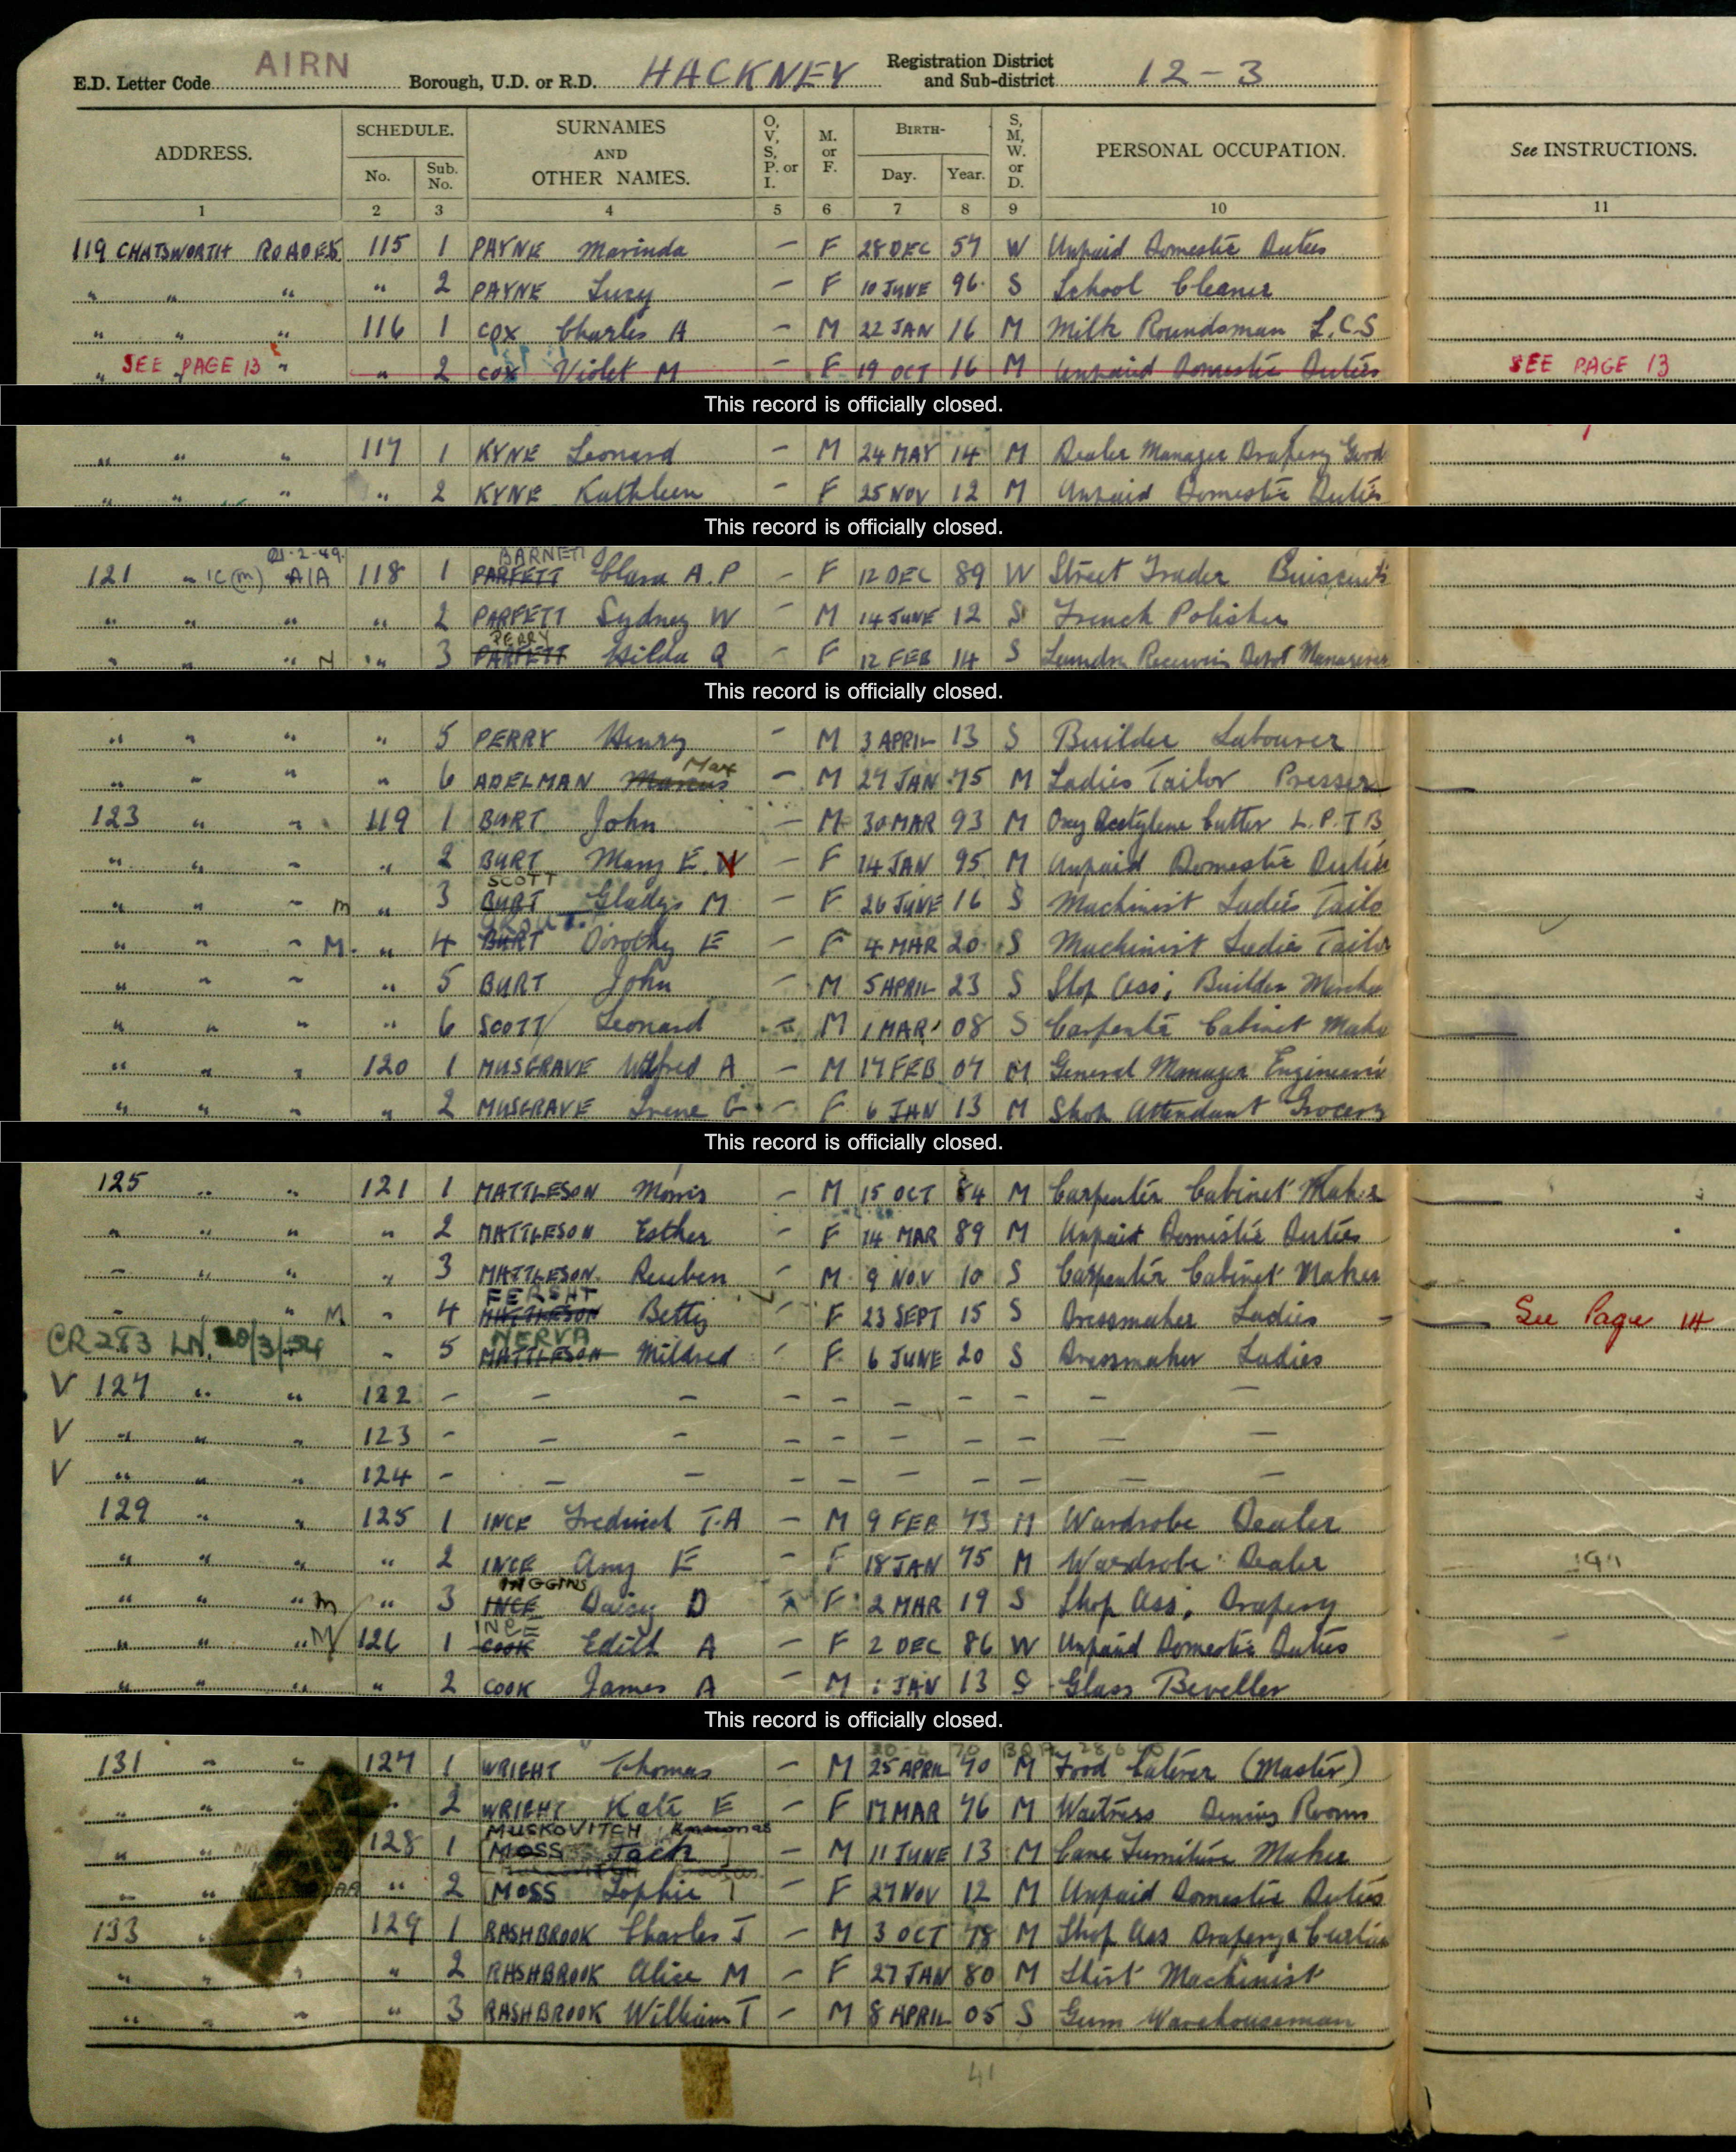 E.D. Letter Code AIRN Borough, U.D. or R.D. HACKNEY Registration District and Sub-district 12-3
ADDRESS. SCHEDULE. No. Sub. No. SURNAMES AND OTHER NAMES. O, V, S, P. or I. M. or F. BIRTH- Day. Year. S, M, W. or D. PERSONAL OCCUPATION. See INSTRUCTIONS.
1 2 3 4 5 6 7 8 9 10 11
119 CHATSWORTH ROAD E5 115 1 PAYNE Marinda — F 28 DEC 57 W Unpaid Domestic Duties
" " " " 2 PAYNE Lucy — F 10 JUNE 96 S School Cleaner
" " " 116 1 COX Charles A — M 22 JAN 16 M Milk Roundsman L.C.S
" SEE PAGE 13 " " 2 COX Violet M — F 19 OCT 16 M Unpaid Domestic Duties SEE PAGE 13
This record is officially closed.
" " " 117 1 KYNE Leonard — M 24 MAY 14 M Dealer Manager Drapery Good
" " " " 2 KYNE Kathleen — F 25 NOV 12 M Unpaid Domestic Duties
This record is officially closed.
BARNETT
121 " 118 1 PARFETT Clara A.P — F 12 DEC 89 W Street Trader Buiscuits
" " " " 2 PARFETT Sydney W — M 14 JUNE 12 S French Polisher
PERRY
" " " N " 3 PARFETT Hilda — F 12 FEB 14 S Laundry Receiving Depot Manageress
This record is officially closed.
" " " " 5 PERRY Henry — M 3 APRIL 13 S Builder Labourer
Max
" " " " 6 ADELMAN Marcus — M 27 JAN 75 M Ladies Tailor Presser
123 " " 119 1 BURT John — M 30 MAR 93 M Oxy Acetylene Cutter L.P.T.B
" " " " 2 BURT Mary E. W — F 14 JAN 95 M Unpaid Domestic Duties
SCOTT
" " " m " 3 BURT Gladys M — F 26 JUNE 16 S Machinist Ladies Tailo
" " " M " 4 BURT Dorothy E — F 4 MAR 20 S Machinist Ladies Tailor
" " " " 5 BURT John — M 5 APRIL 23 S Shop Ass; Builder Mercha
" " " " 6 SCOTT Leonard — M 1 MAR 08 S Carpenter Cabinet Make
" " " 120 1 MUSGRAVE Wilfred A — M 17 FEB 07 M General Manager Engineerin
" " " " 2 MUSGRAVE Irene G — F 6 JAN 13 M Shop Attendant Grocery
This record is officially closed.
125 " " 121 1 MATTLESON Morris — M 15 OCT 84 M Carpenter Cabinet Maker
" " " " 2 MATTLESON Esther — F 14 MAR 89 M Unpaid Domestic Duties
" " " " 3 MATTLESON Reuben — M 9 NOV 10 S Carpenter Cabinet Maker
FERSHT
" " M " 4 MATTLESON Betty — F 23 SEPT 15 S Dressmaker Ladies See Page 14
NERVA
CR283 LN. " 5 MATTLESON Mildred — F 6 JUNE 20 S Dressmaker Ladies
V 127 " " 122 — — — — — — — — — —
V " " " 123 — — — — — — — — — —
V " " " 124 — — — — — — — — — —
129 " " 125 1 INCE Fredrick T.A — M 9 FEB 73 M Wardrobe Dealer
" " " " 2 INCE Amy E — F 18 JAN 75 M Wardrobe Dealer
HIGGINS
" " " m " 3 INCE Daisy D — F 2 MAR 19 S Shop Ass; Drapery
INCE
" " " M 126 1 COOK Edith A — F 2 DEC 86 W Unpaid Domestic Duties
" " " " 2 COOK James A — M 1 JAN 13 S Glass Beveller
This record is officially closed.
131 " " 127 1 WRIGHT Thomas — M 25 APRIL 70 M Food Caterer (Master)
" " " 2 WRIGHT Kate E — F 17 MAR 76 M Waitress Dining Rooms
MUSKOVITCH
" " 128 1 MOSS Jack — M 11 JUNE 13 M Cane Furniture Maker
" " " 2 MOSS Sophie — F 27 NOV 12 M Unpaid Domestic Duties
133 " 129 1 RASHBROOK Charles J — M 3 OCT 78 M Shop Ass Drapery & Curtain
" " " " 2 RASHBROOK Alice M — F 27 JAN 80 M Shirt Machinist
" " " " 3 RASHBROOK William T — M 8 APRIL 05 S Gum Warehouseman
41